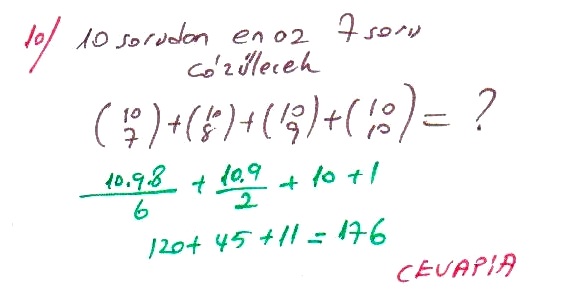 10/ 10 sorudan en az 7 soru
çözülecek
(10 7) + (10 8) + (10 9) + (10 10) = ?
10.9.8/6 + 10.9/2 + 10 + 1
120 + 45 + 11 = 176
CEVAP A